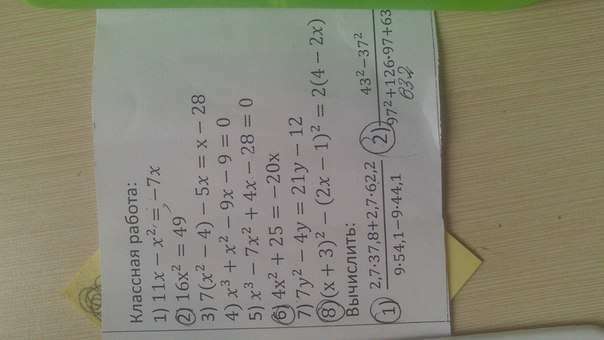 Классная работа:
1) 11x − x² = −7x
2) 16x² = 49
3) 7(x² − 4) − 5x = x − 28
4) x³ + x² − 9x − 9 = 0
5) x³ − 7x² + 4x − 28 = 0
6) 4x² + 25 = −20x
7) 7y² − 4y = 21y − 12
8) (x + 3)² − (2x − 1)² = 2(4 − 2x)
Вычислить:
1) 2,7·37,8+2,7·62,2
9·54,1−9·44,1
2) 43²−37²
97²+126·97+63